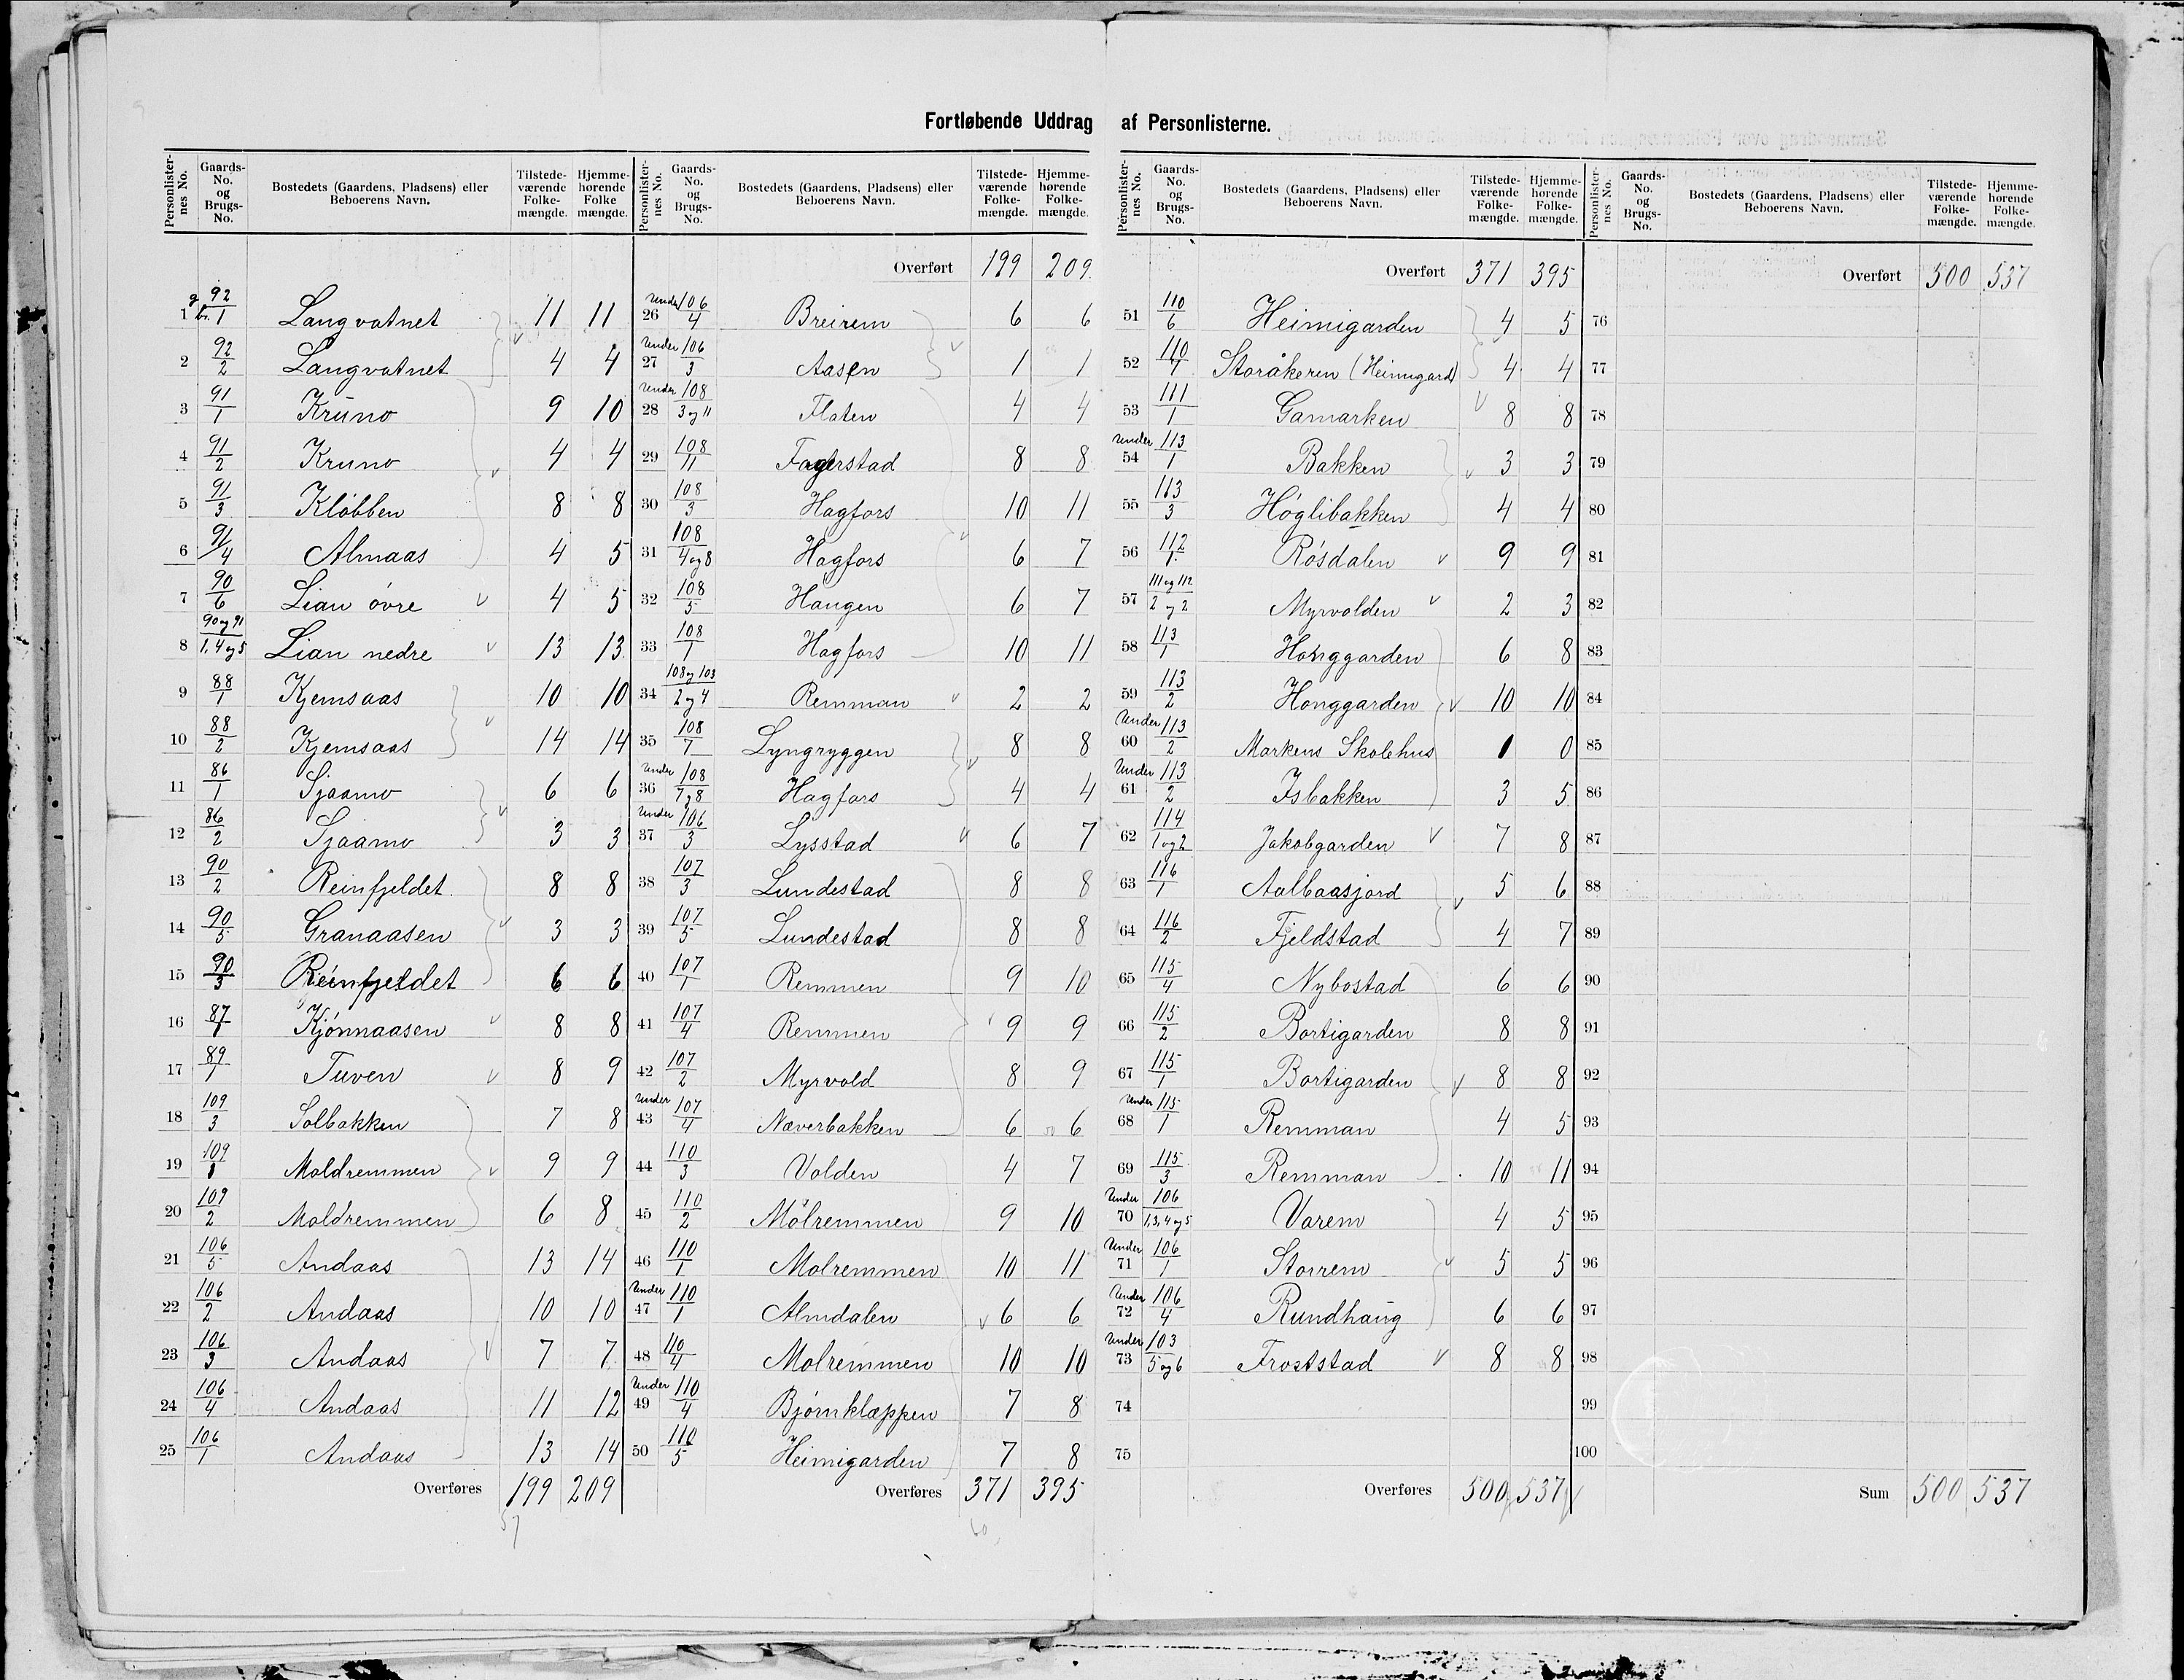 Fortløbende Uddrag af Personlisterne.
Personlister-nes No. | Gaards-No. og Brugs-No. | Bostedets (Gaardens, Pladsens) eller Beboerens Navn. | Tilstede-værende Folke-mængde. | Hjemme-hørende Folke mængde.
1 | g 92 / br. 1 | Langvatnet | 11 | 11
2 | 92/2 | Langvatnet | 4 | 4
3 | 91/1 | Kruno | 9 | 10
4 | 91/2 | Kruno | 4 | 4
5 | 91/3 | Klobben | 8 | 8
6 | 91/4 | Almaas | 4 | 5
7 | 90/6 | Lian øvre | 4 | 5
8 | 90 og 91 / 1, 4 og 5 | Lian nedre | 13 | 13
9 | 88/1 | Kjemsaas | 10 | 10
10 | 88/2 | Kjemsaas | 14 | 14
11 | 86/1 | Sjaamo | 6 | 6
12 | 86/2 | Sjaamo | 3 | 3
13 | 90/2 | Reinfjeldet | 8 | 8
14 | 90/5 | Granaasen | 3 | 3
15 | 90/3 | Reinfjeldet | 6 | 6
16 | 87/1 | Kjønnaasen | 8 | 8
17 | 89/1 | Tuven | 8 | 9
18 | 109/3 | Solbakken | 7 | 8
19 | 109/1 | Moldremmen | 9 | 9
20 | 109/2 | Moldremmen | 6 | 8
21 | 106/5 | Andaas | 13 | 14
22 | 106/2 | Andaas | 10 | 10
23 | 106/3 | Andaas | 7 | 7
24 | 106/4 | Andaas | 11 | 12
25 | 106/1 | Andaas | 13 | 14
Overføres | 199 | 209
57
Personlister-nes No. | Gaards-No. og Brugs-No. | Bostedets (Gaardens, Pladsens) eller Beboerens Navn. | Tilstede-værende Folke-mængde. | Hjemme-hørende Folke-mængde.
Overført | 199 | 209
26 | Under 106/4 | Breirem | 6 | 6
27 | Under 106/3 | Aasen | 1 | 1
28 | Under 108 / 3 og 11 | Flaten | 4 | 4
29 | 108/11 | Fagerstad | 8 | 8
30 | 108/3 | Hagfors | 10 | 11
31 | 108 / 4 og 8 | Hagfors | 6 | 7
32 | 108/5 | Haugen | 6 | 7
33 | 108/1 | Hagfors | 10 | 11
34 | 108 og 103 / 2 og 4 | Remman | 2 | 2
35 | 108/7 | Lyngryggen | 8 | 8
36 | Under 108 / 7 og 8 | Hagfors | 4 | 4
37 | Under 106/3 | Lysstad | 6 | 7
38 | 107/3 | Lundestad | 8 | 8
39 | 107/5 | Lundestad | 8 | 8
40 | 107/1 | Remmen | 9 | 10
41 | 107/4 | Remmen | 9 | 9
42 | 107/2 | Myrvold | 8 | 9
43 | Under 107/4 | Næverbakken | 6 | 6
44 | 110/3 | Volden | 4 | 7
45 | 110/2 | Molremmen | 9 | 10
46 | 110/1 | Molremmen | 10 | 11
47 | Under 110/1 | Almdalen | 6 | 6
48 | 110/4 | Molremmen | 10 | 10
49 | Under 110/4 | Bjørnklæppen | 7 | 8
50 | 110/5 | Heimigarden | 7 | 8
Overføres | 371 | 395
60
Personlister-nes No. | Gaards-No. og Brugs-No. | Bostedets (Gaardens, Pladsens) eller Beboerens Navn. | Tilstede-værende Folke-mængde. | Hjemme-hørende Folke-mængde.
Overført | 371 | 395
51 | 110/6 | Heimigarden | 4 | 5
52 | 110/7 | Storåkeren (Heimigard) | 4 | 4
53 | 111/1 | Gamarken | 8 | 8
54 | Under 113/1 | Bakken | 3 | 3
55 | 113/3 | Høglibakken | 4 | 4
56 | 112/1 | Røsdalen | 9 | 9
57 | 111 og 112 / 2 og 2 | Myrvolden | 2 | 3
58 | 113/1 | Honggarden | 6 | 8
59 | 113/2 | Honggarden | 10 | 10
60 | Under 113/2 | Markens Skolehus | | 0
61 | Under 113/2 | Isbakken | 3 | 5
62 | 114 / 1 og 2 | Jakobgarden | 7 | 8
63 | 116/1 | Aalbaasjord | 5 | 6
64 | 116/2 | Fjeldstad | 4 | 7
65 | 115/4 | Nybostad | 6 | 6
66 | 115/2 | Bortigarden | 8 | 8
67 | 115/1 | Bortigarden | 8 | 8
68 | Under 115/1 | Remman | 4 | 5
69 | 115/3 | Remman | 10 | 11
70 | Under 106 / 1, 3, 4 og 5 | Varem | 4 | 5
71 | Under 106/1 | Storrem | 5 | 5
72 | Under 106/4 | Rundhaug | 6 | 6
73 | Under 103 / 5 og 6 | Froststad | 8 | 8
74
75
Overføres | 500 | 537
Personlister-nes No. | Gaards-No. og Brugs-No. | Bostedets (Gaardens, Pladsens) eller Beboerens Navn. | Tilstede-værende Folke-mængde. | Hjemme-hørende Folke-mængde.
Overført | 500 | 537
76
77
78
79
80
81
82
83
84
85
86
87
88
89
90
91
92
93
94
95
96
97
98
99
100
Sum | 500 | 537